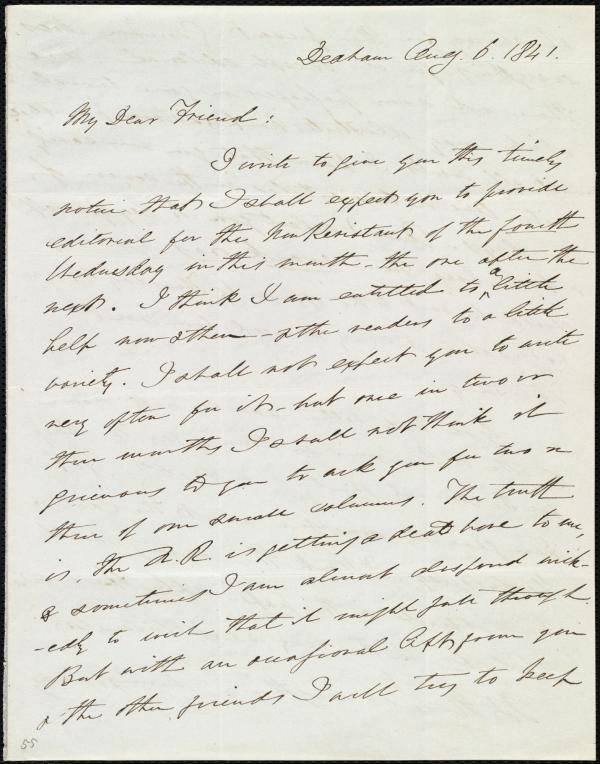 Dedham Aug. 6. 1841.
My Dear Friend:
I write to give you this timely
notice that I shall expect you to provide
editorial for the Non Resistant of the fourth
Wednesday in this month - the one after the
next. I think I am entitled to a little
help now & then - & the readers to a little
variety. I shall not expect you to write
very often for it - but once in two or
three months I shall not think it
grievous to you to ask you for two or
three of our small columns. The truth
is, the N. R. is getting a dead bore to me,
& sometimes I am almost disposed wick-
-edly to wish that it might fall through.
But with an occasional lift from you
& the other friends I will try to keep
55